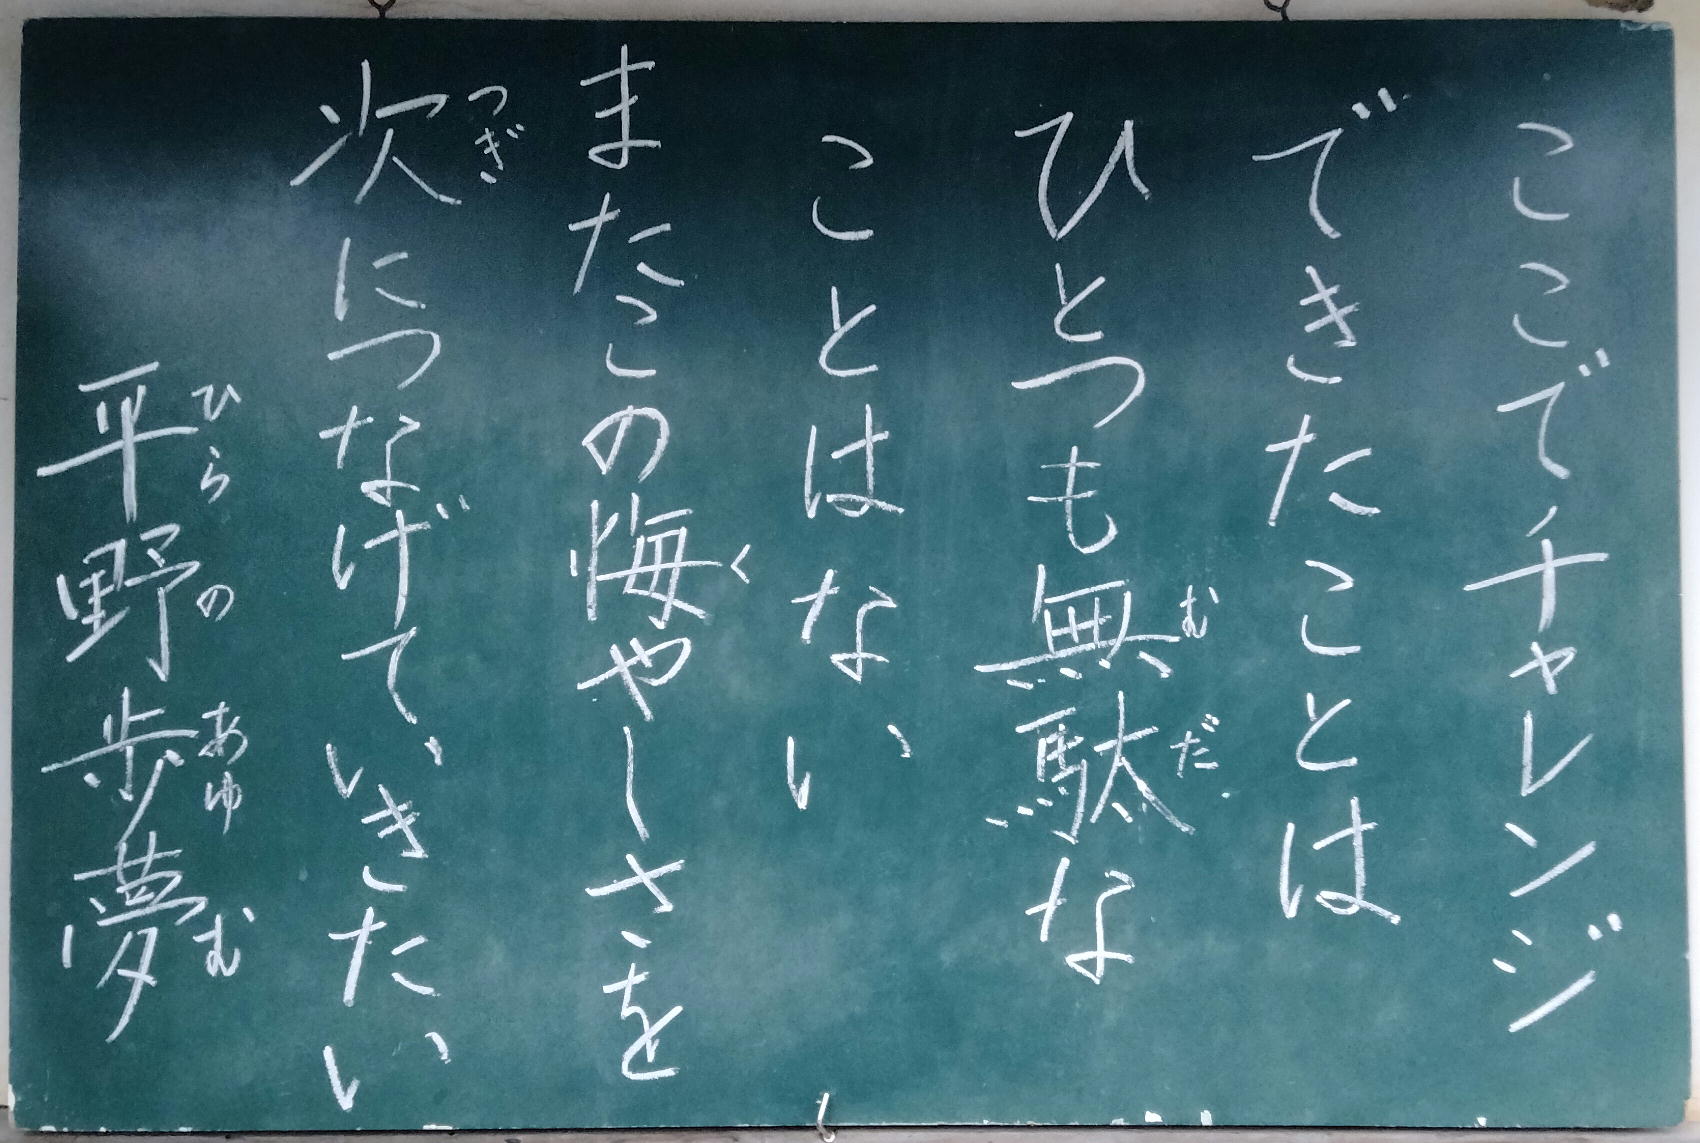 ここでチャレンジ
できたことは
ひとつも無駄な
むだ
ことはない
またこの悔やしさを
く
次につなげていきたい
つぎ
平野歩夢
ひらのあゆむ